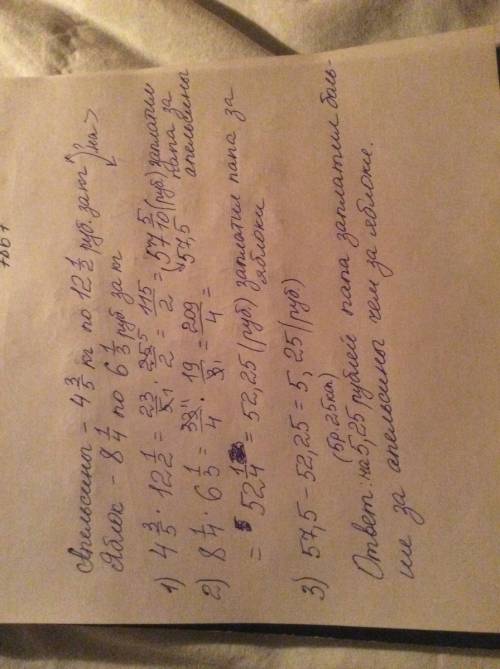 №61
Апельсины - 4 3/5 кг по 12 1/2 руб. за кг } на >
Яблок - 8 1/4 по 6 1/3 руб за кг
1) 4 3/5 · 12 1/2 = 23/5 · 25/2 = 115/2 = (57 5/10 (руб) заплатил папа за апельсины
57,5
2) 8 1/4 · 6 1/3 = 33/4 · 19/3 = 209/4 =
= 52 1/4 = 52,25 (руб) заплатил папа за яблоки
3) 57,5 - 52,25 = 5,25 (руб)
(5р. 25коп)
Ответ: на 5,25 рублей папа заплатил боль-
ше за апельсины чем за яблоки.